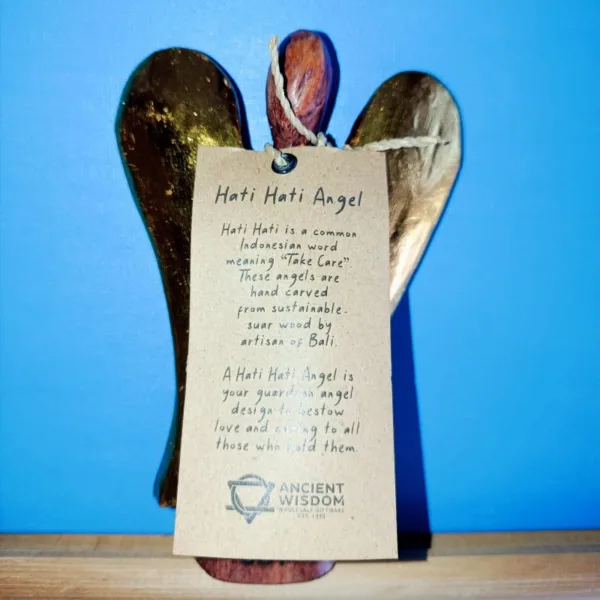 Hati Hati Angel
Hati Hati is a common
Indonesian word
meaning "Take Care".
These angels are
hand carved
from sustainable.
suar wood by
artisan of Bali.
A Hati Hati Angel is
your guardian angel
design to bestow
love and caring to all
those who hold them.
ANCIENT
WISDOM
WHOLESALE GIFTWARE
EST. 1995